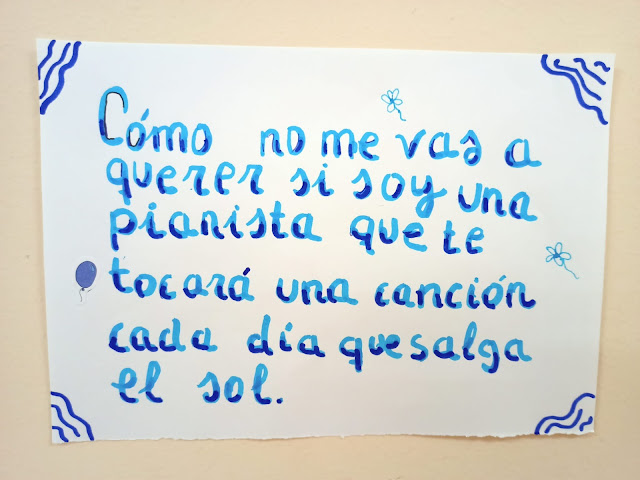 Cómo no me vas a
querer si soy una
pianista que te
tocará una canción
cada día que salga
el sol.